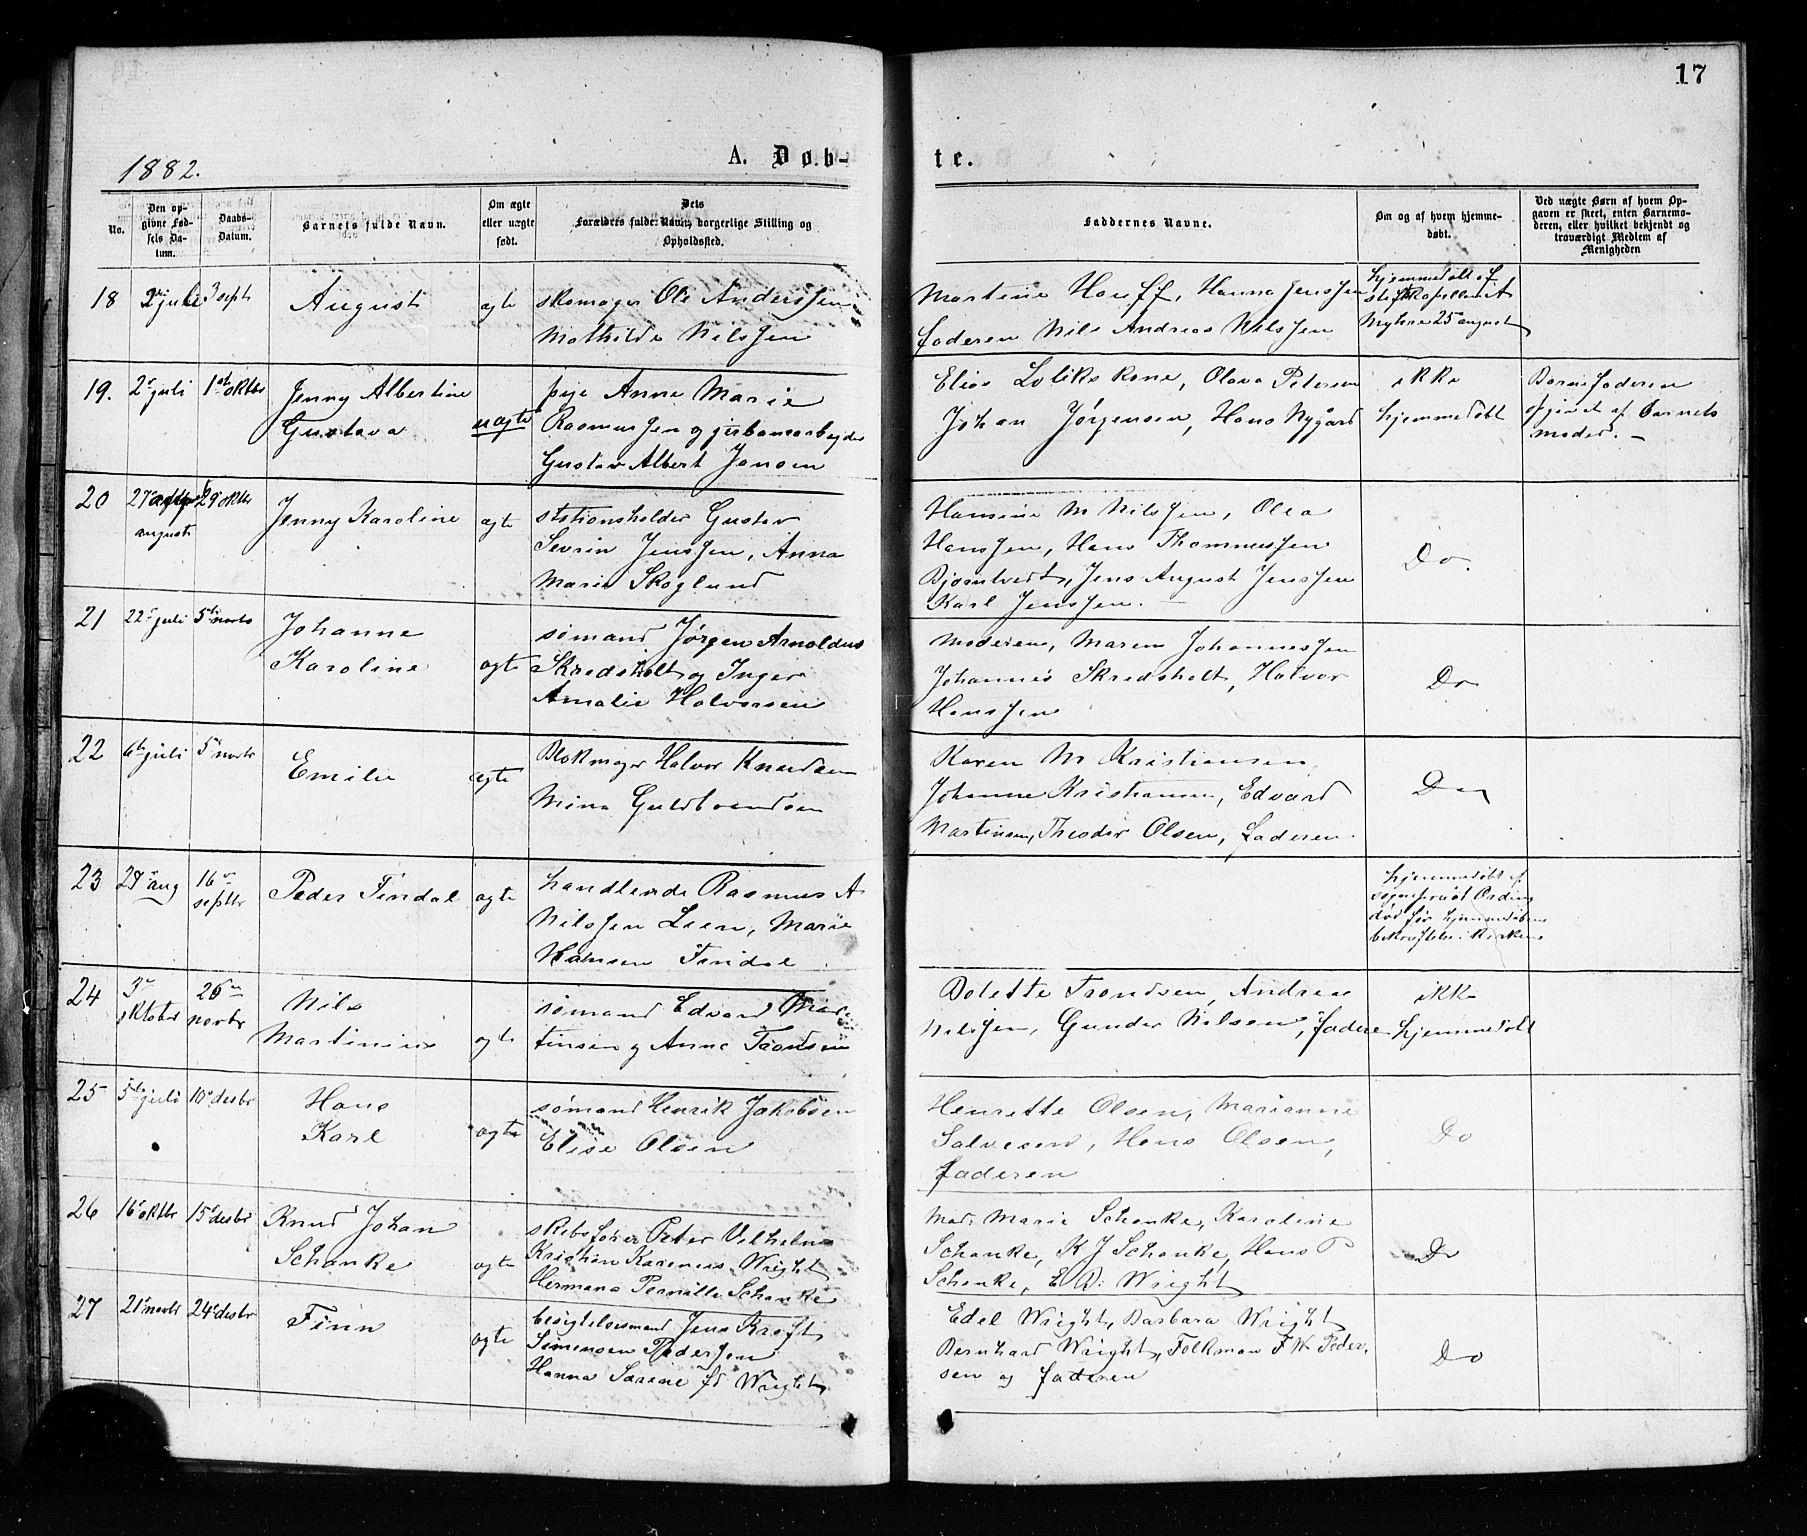 17
1882.
A. Døb-
te.
No.
Den op-
givne Fød-
sels Da-
tum.
Daabs-
Datum.
Barnets fulde Navn.
Om ægte
eller uægte
født.
Dets
Forældres fulde Navn, borgerlige Stilling og
Opholdssted.
Faddernes Navne.
Om og af hvem hjemme-
døbt.
Ved uægte Børn af hvem Op-
gaven er skeet, enten Barnemo-
deren, eller hvilket bekjendt og
troværdigt Medlem af
Menigheden
18 2 juli 3 sept August ægte skomager Ole Anderssen
Mathilde Nilssen
Martine Hauff, Hanna Jenssen
faderen Nils Andreas Nilssen
hjemmedøbt af
stiftskapellan
Myhre 25 august
19. 2 juli 1st oktbr Jenny Albertine
Gustava
uægte
pige Anne Marie
Rasmussen og jernbanearbejder
Gustav Albert Jensen
Elias kone, Olava Petersen
Johan Jørgensen, Hans Nygård
ikke
hjemmedøbt
Barnefaderen
opgivet af Barnets
moder. –
20 27
august
29 oktbr Jenny Karoline ægte stationsholder Gustav
Sevrin Jenssen, Anna
Marie Skoglund
Hansine M Nilssen, Olea
Hanssen, Hans Thommessen
Bjørntvedt, Jens August Jenssen
Karl Jenssen. –
Do.
21 22 juli 5 novbr Johanne
Karoline
ægte
sømand Jørgen Arnoldus
Skredsholt og Inger
Amalie Halvorsen
Moderen, Maren Johannessen
Johannes Skredsholt, Halvor
Hanssen
Do
22 6te juli 5 novbr Emilie ægte Blokmager Halvor Knudsen
Mina Guldbrandsen
Karen M Kristiansen,
Johanne Kristiansen, Edvard
Martinsen, Theodor Olsen, Faderen
Do
23 27 aug 16
septbr
Peder Findal ægte handlende Rasmus A
Nilssen Leen, Marie
Hansen Findal
hjemmedøbt af
sogneprest Ording
død før hjemmedåbens
bekræftelse i Kirken
24 3
oktober
26
novbr
Nils
Martinius
ægte
sømand Edvard Mar-
tinsen og Anne Trondsen
Bolette Trondsen, Andrea
Nilssen, Gunder Nilsen, faderen
ikke
hjemmedøbt
25 5te juli 10 desbr Hans
Karl
ægte
sømand Henrik Jakobsen
Elise Olsen
Henrette Olsen, Marianne
Salvesen, Hans Olsen,
faderen
Do
26 16 oktbr 15 desbr Knud Johan
Schanke
ægte
skibsfører Peter Vilhelm
Kristian Wright
Hermana Pernille Schanke
Mad: Marie Schanke, Karoline
Schanke, K J Schanke, Hans P
Schanke, E. D: Wright
Do
27 21 novbr 24 desbr Finn ægte
besigtelsesmand Jens Kroft
Simensen Pedersen
Hanna Sarine fd Wright
Edel Wright, Barbara Wright
Bernhard Wright, Folkman F W Peder-
sen og faderen
Do